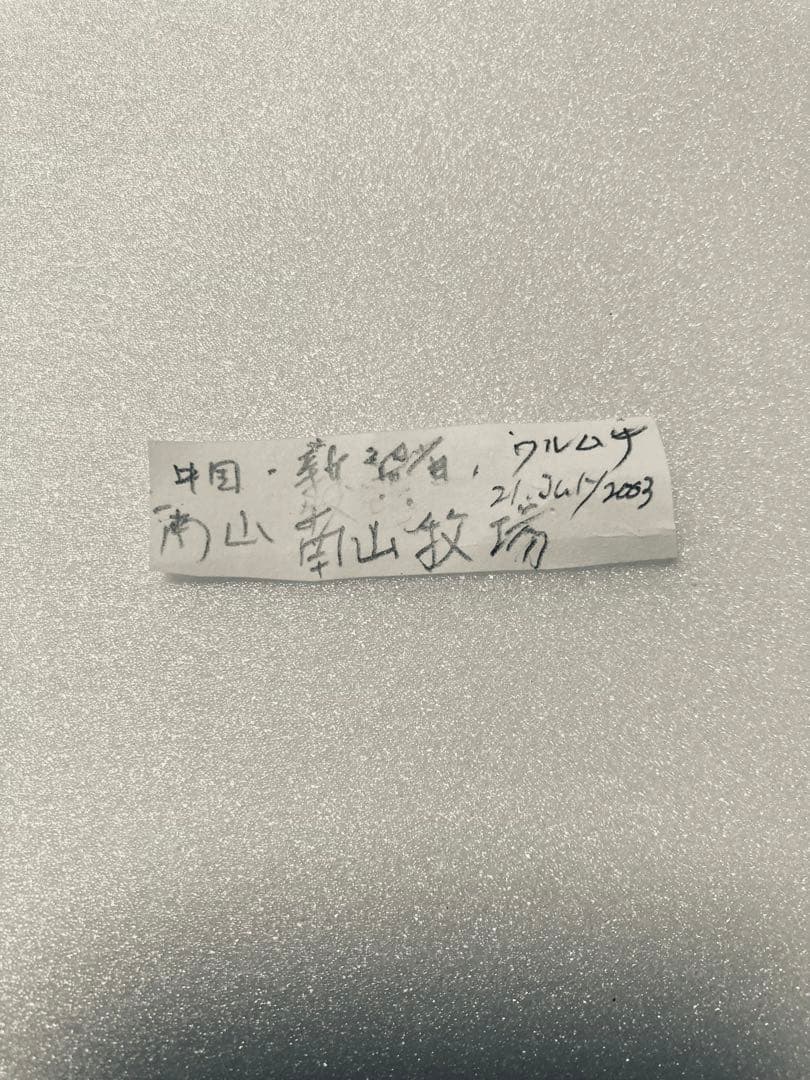 中国・新疆省、ウルムチ
21. July/2003
南山 南山牧場